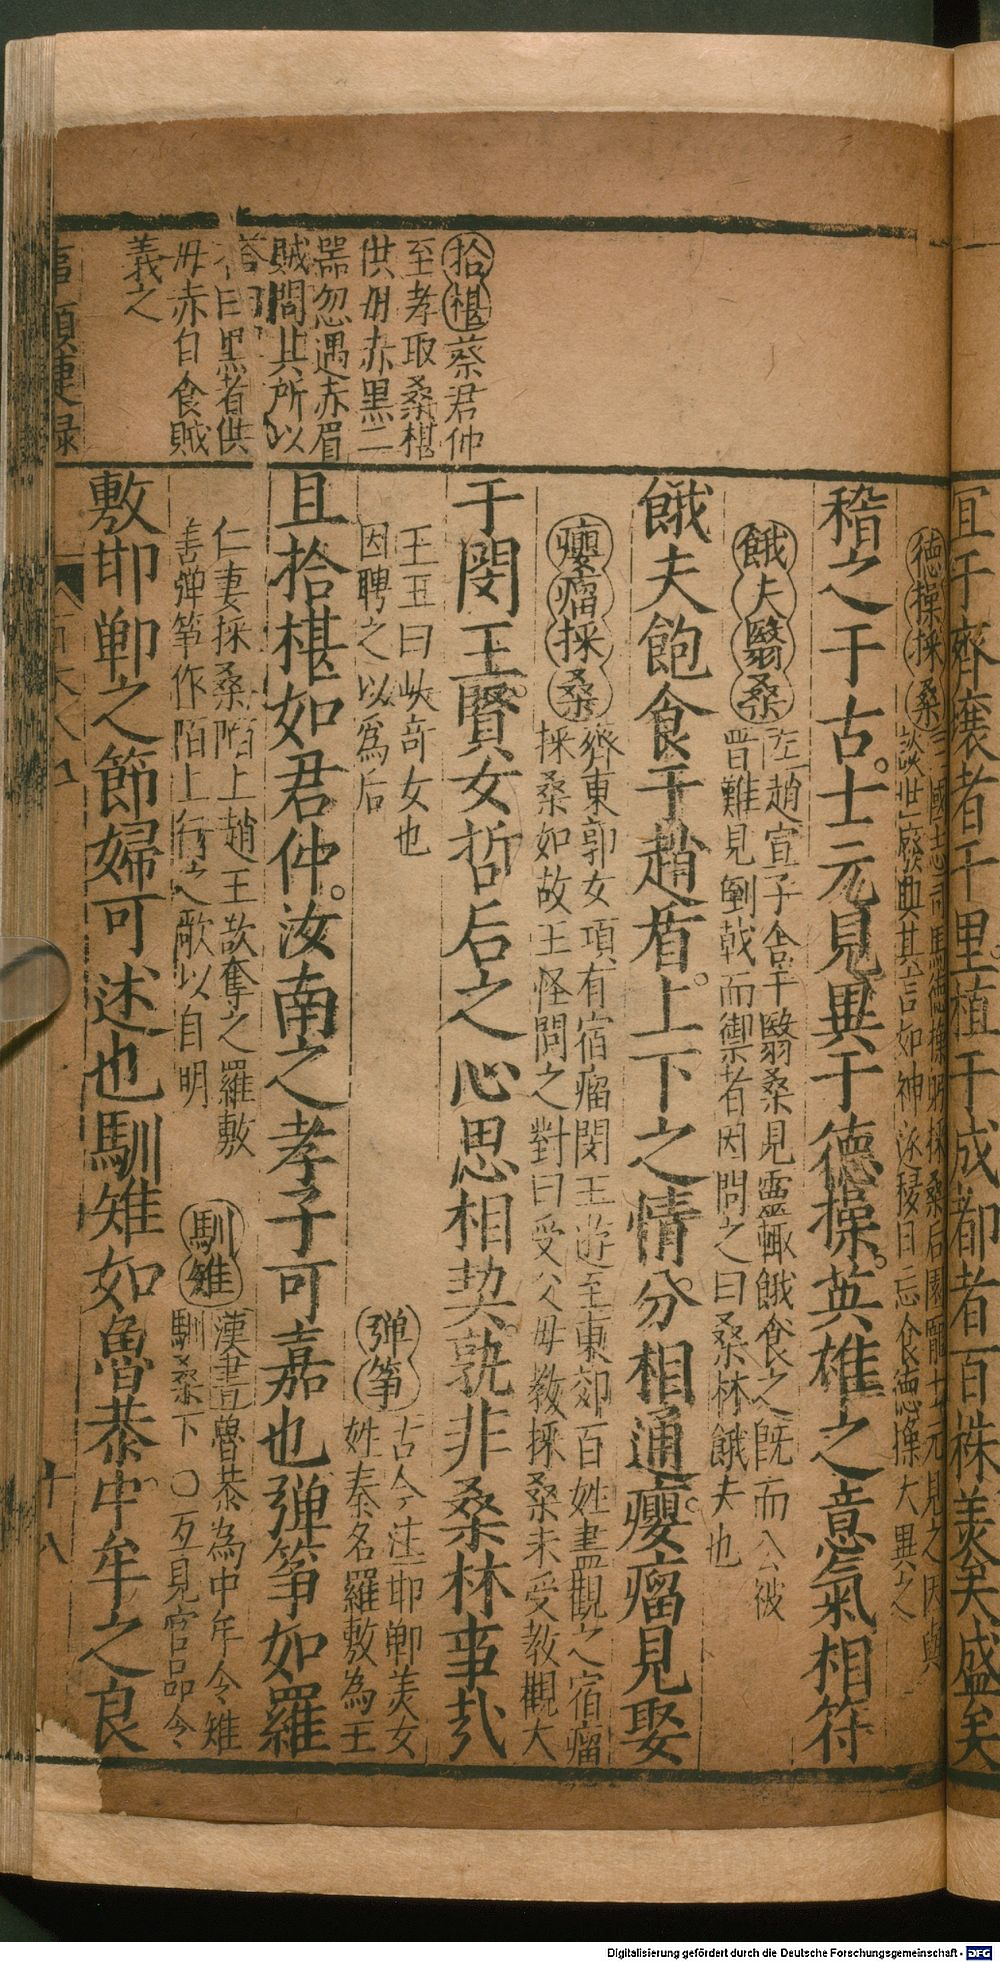 冝于齊穰者千里植于成都者百株羙矣盛矣
德操採桑
國志司馬德操躬採桑后園龐士元見之因與
談世廢典其言如神遂移日忘食德操大異之
稽之于古士元見異于德操英雄之意氣相符
餓夫翳桑
左趙宣子舍于翳桑見靈輒餓食之既而公被
晋難見倒戟而禦者因問之曰桑林餓夫也
餓夫飽食于趙盾上下之情分相通癭瘤見娶
癭瘤採桑
齊東郭女項有宿瘤閔王遊至東郊百姓盡觀之宿瘤
採桑如故王怪問之對曰受父母教採桑未受教觀大
王王曰此奇女也
因聘之以爲后
于閔王賢女哲后之心思相契孰非桑林事㢤
拾椹
蔡君仲
至孝取桑椹
供母赤黒二
噐忽遇赤眉
賊問其所以
答曰黒者供
母赤自食賊
義之
且拾椹如君仲汝南之孝子可嘉也弾筝如羅
弹筝
古今注邯鄲羙女
姓秦名羅敷為王
仁妻採桑陌上趙王欲奪之羅敷
善弹筝作陌上行之歌以自明
馴雉
漢書魯恭為中牟令雉
馴桑下〇互見官品令
敷邯鄲之節婦可述也馴雉如魯恭中牟之良
事類捷録
十八
Digitalisierung gefördert durch die Deutsche Forschungsgemeinschaft - DFG